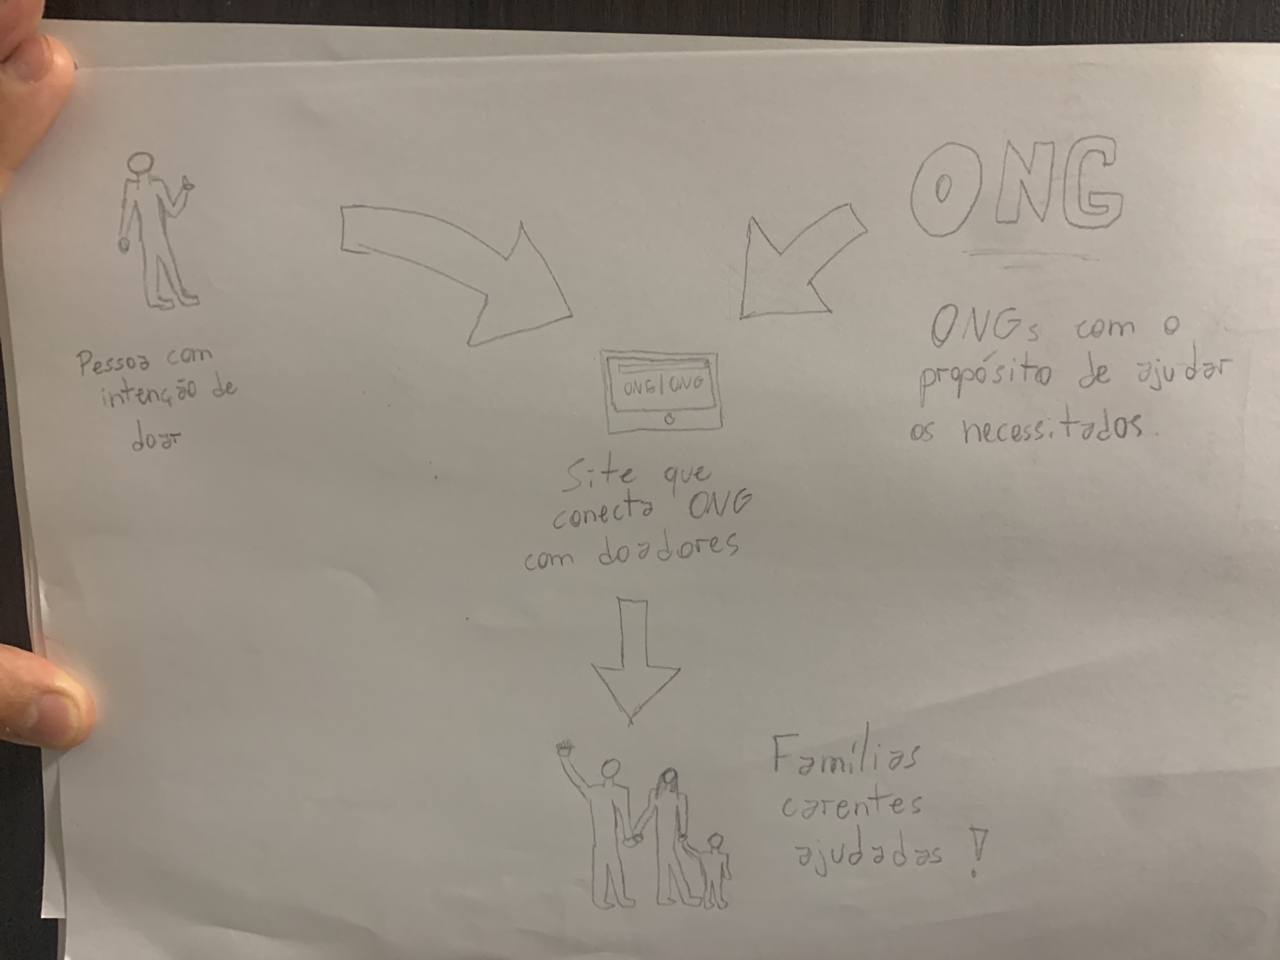 Pessoa com
intenção de
doar
ONG
ONGs com o
propósito de ajudar
os necessitados.
ONG/ONG
Site que
conecta ONG
com doadores
Famílias
carentes
ajudadas!